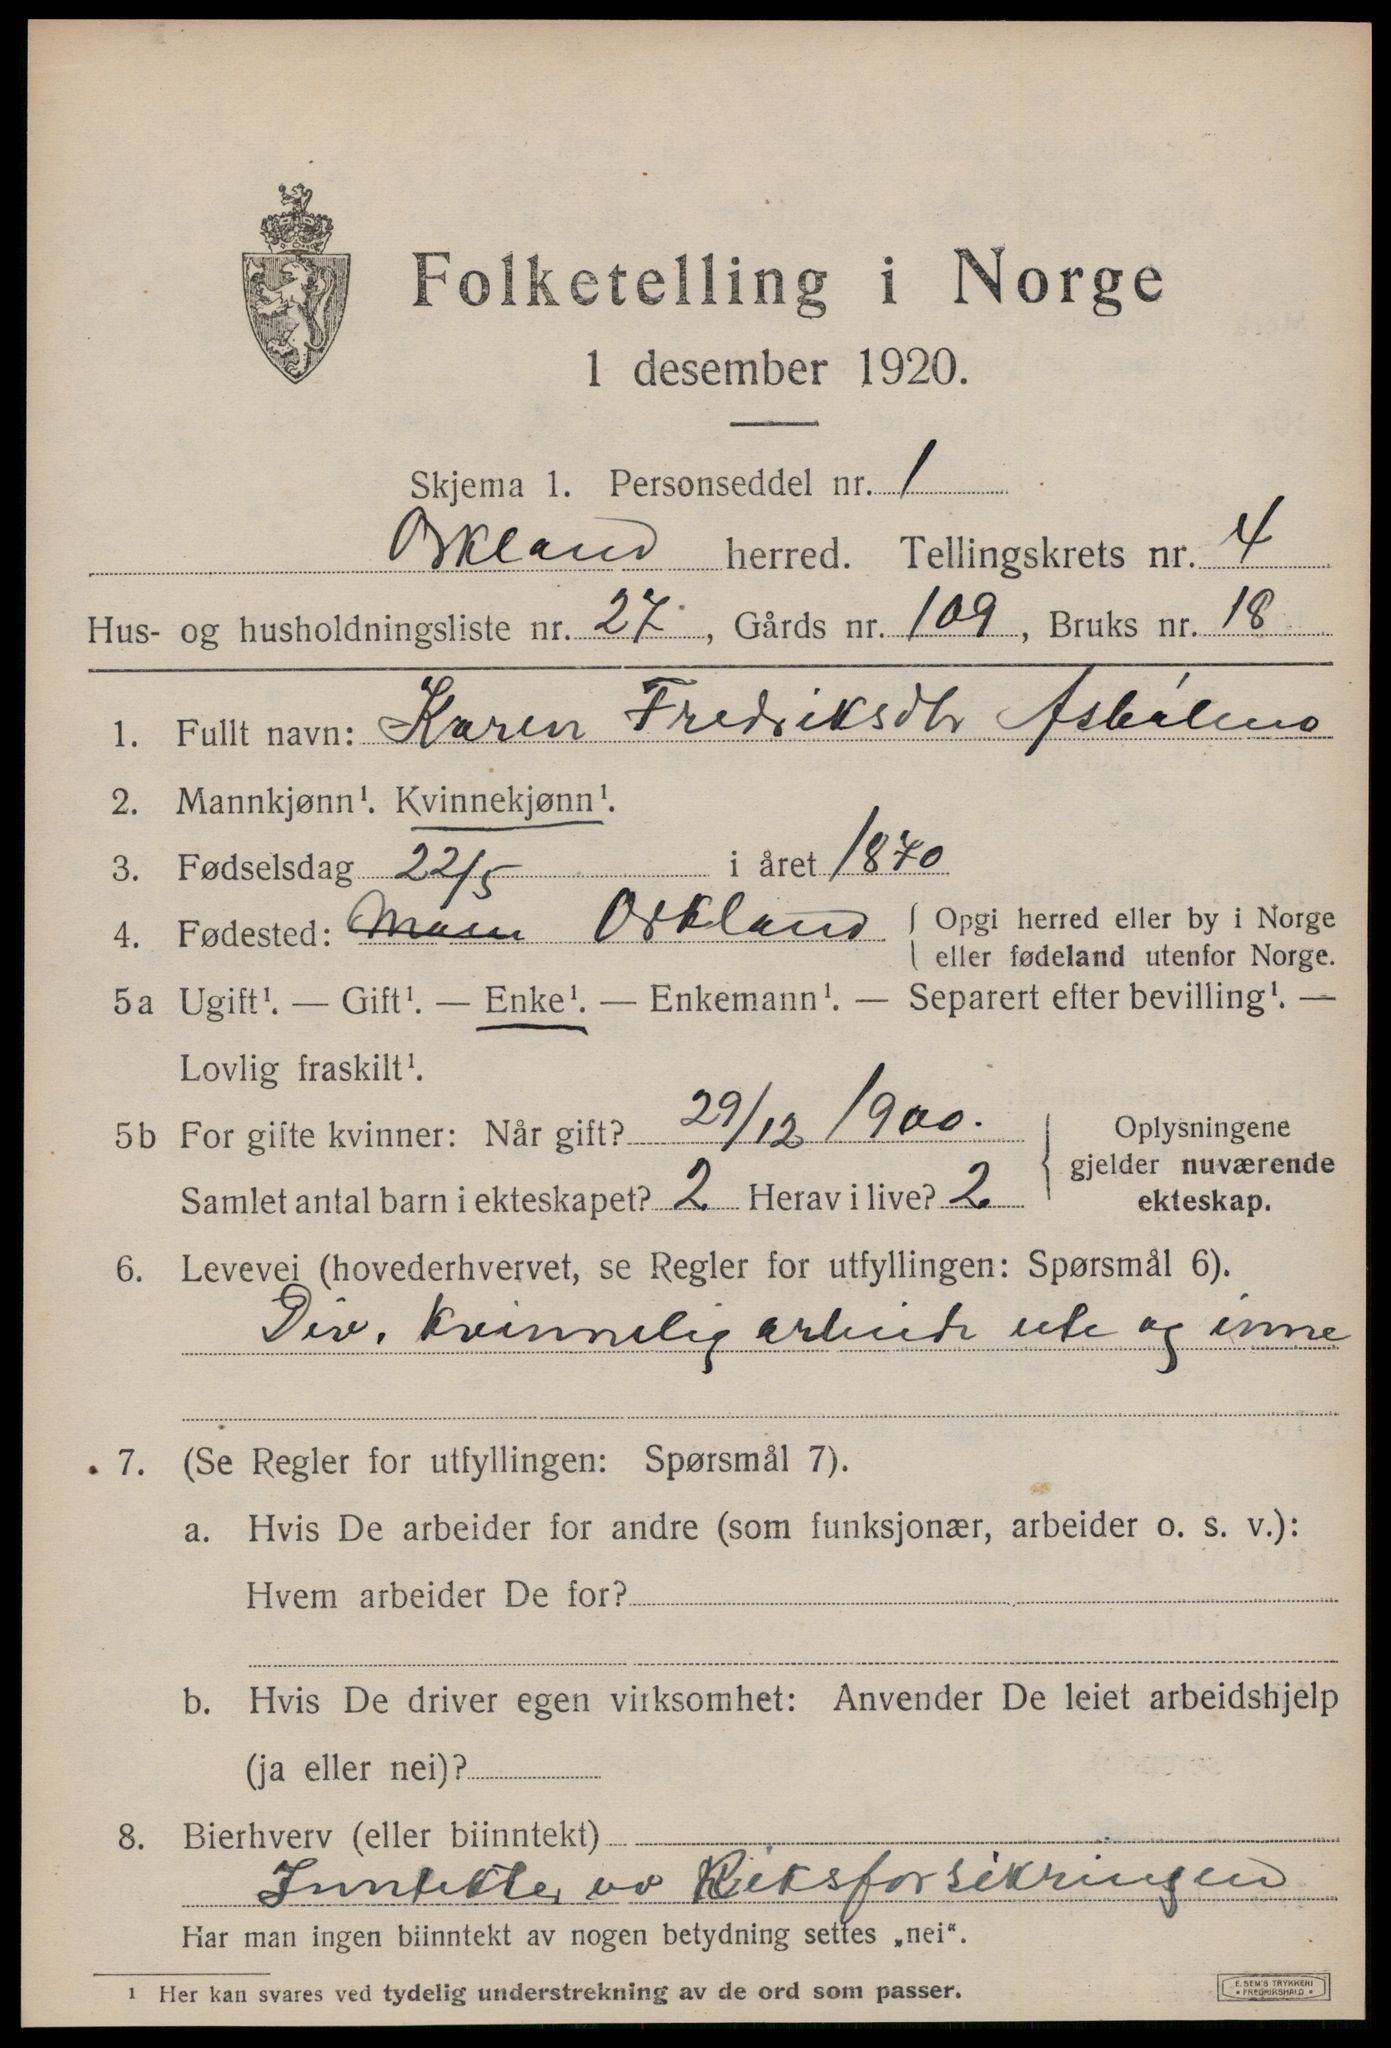 Folketelling i Norge
1 desember 1920.
Skjema 1. Personseddel nr. 1
Orkland herred. Tellingskrets nr. 4
Hus- og husholdningsliste nr. 27, Gårds nr. 109, Bruks nr. 18
1. Fullt navn: Karen Fredriksdtr
2. Mannkjønn¹. Kvinnekjønn¹.
3. Fødselsdag 22/5 i året 1870
4. Fødested: Orkland { Opgi herred eller by i Norge
eller fødeland utenfor Norge.
5a Ugift¹. — Gift¹. — Enke¹. — Enkemann¹. — Separert efter bevilling¹. —
Lovlig fraskilt¹.
5b For gifte kvinner: Når gift? 29/12 1900.
Samlet antal barn i ekteskapet? 2 Herav i live? 2
Oplysningene
gjelder nuværende
ekteskap.
6. Levevei (hovederhvervet, se Regler for utfyllingen: Spørsmål 6).
Div. kvinnelig arbeide ute og inne
7. (Se Regler for utfyllingen: Spørsmål 7).
a. Hvis De arbeider for andre (som funksjonær, arbeider o. s. v.):
Hvem arbeider De for?
b. Hvis De driver egen virksomhet: Anvender De leiet arbeidshjelp
(ja eller nei)?
8. Bierhverv (eller biinntekt)
Inntekter av Riksforsikringen
Har man ingen biinntekt av nogen betydning settes „nei“.
¹ Her kan svares ved tydelig understrekning av de ord som passer.
E. SEM'S TRYKKERI
• FREDRIKSHALD •